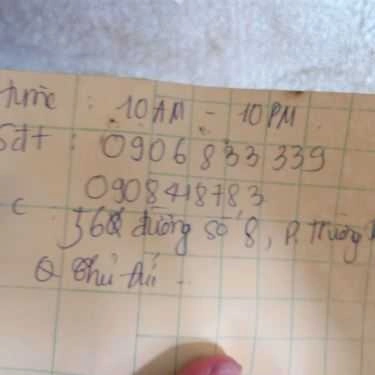 time : 10 AM - 10 PM
Sđt : 0906 833 339
0908418783
C 56 đường số 8, P. Trường
Q Thủ Đức